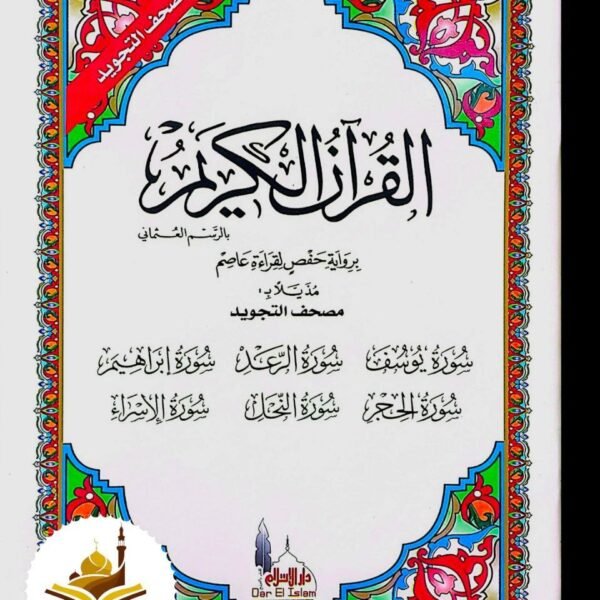 مصحف التجويد
القُرآنُ الكَرِيمُ
بالرَّسْمِ العُثْمَانِي
بِرِوَايَةِ حَفْصٍ لِقِرَاءَةِ عَاصِمٍ
مُذَيَّلًا بِـ:
مصحف التجويد
سُورَةُ يُوسُفَ سُورَةُ الرَّعْدِ سُورَةُ إِبْرَاهِيمَ
سُورَةُ الحِجْرِ سُورَةُ النَّحْلِ سُورَةُ الإِسْرَاءِ
دار الإسلام
Dar El Islam